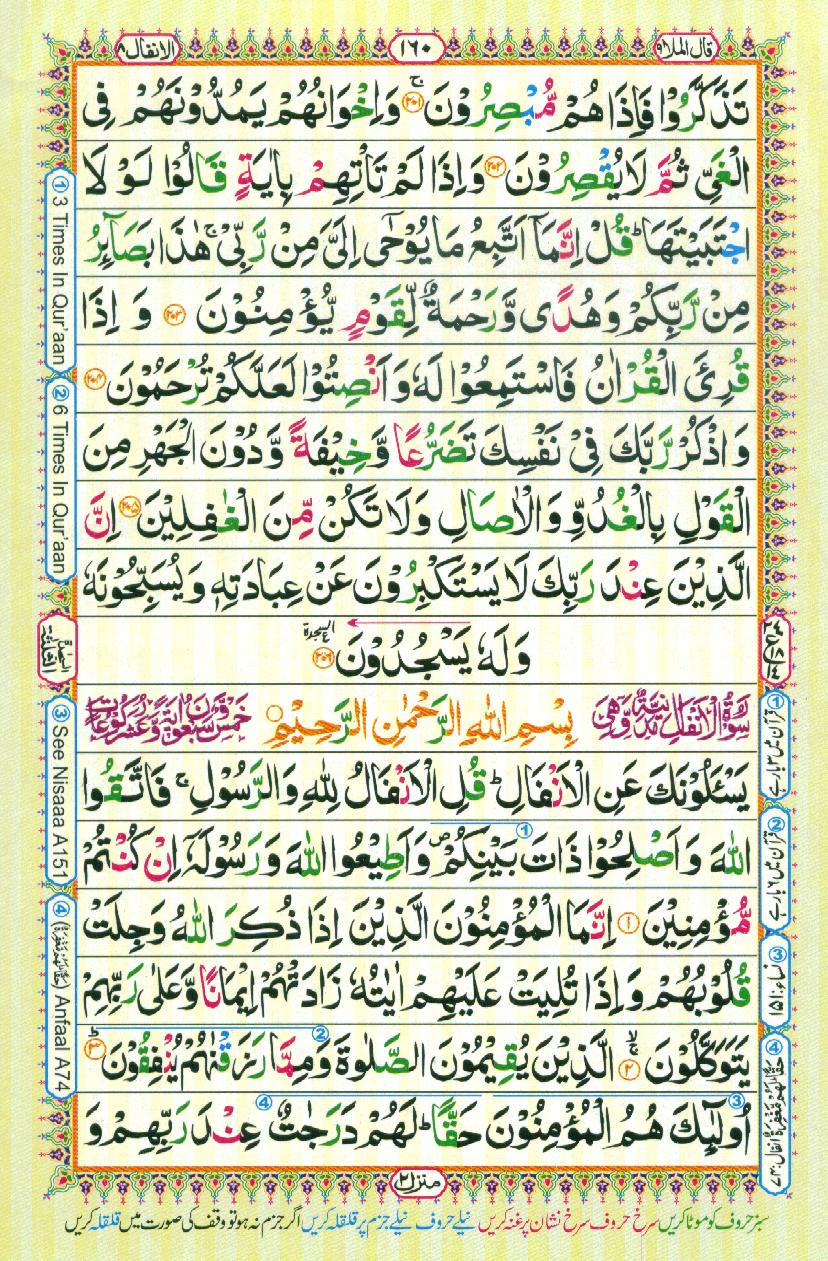 قال الملا ۹
۱۶۰
الانفال ۸
تَذَكَّرُوۡا فَاِذَا هُمۡ مُّبۡصِرُوۡنَ ۚ‏ ﴿۲۰۱﴾ وَاِخۡوَانُهُمۡ يَمُدُّوۡنَهُمۡ فِى
الۡغَىِّ ثُمَّ لَا يُقۡصِرُوۡنَ ﴿۲۰۲﴾ وَاِذَا لَمۡ تَاۡتِهِمۡ بِاٰيَةٍ قَالُوۡا لَوۡ لَا
اجۡتَبَيۡتَهَا ؕ قُلۡ اِنَّمَاۤ اَتَّبِعُ مَا يُوۡحٰٓى اِلَىَّ مِنۡ رَّبِّىۡ ۚ هٰذَا بَصَآئِرُ
مِنۡ رَّبِّكُمۡ وَهُدًى وَّرَحۡمَةٌ لِّقَوۡمٍ يُّؤۡمِنُوۡنَ ﴿۲۰۳﴾ وَ اِذَا
قُرِئَ الۡقُرۡاٰنُ فَاسۡتَمِعُوۡا لَهٗ وَاَنۡصِتُوۡا لَعَلَّكُمۡ تُرۡحَمُوۡنَ ﴿۲۰۴﴾
وَاذۡكُرْ رَّبَّكَ فِىۡ نَفۡسِكَ تَضَرُّعًا وَّخِيۡفَةً وَّدُوۡنَ الۡجَـهۡرِ مِنَ
الۡقَوۡلِ بِالۡغُدُوِّ وَالۡاٰصَالِ وَلَا تَكُنۡ مِّنَ الۡغٰفِلِيۡنَ ﴿۲۰۵﴾ اِنَّ
الَّذِيۡنَ عِنۡدَ رَبِّكَ لَا يَسۡتَكۡبِرُوۡنَ عَنۡ عِبَادَتِهٖ وَيُسَبِّحُوۡنَهٗ
وَلَهٗ يَسۡجُدُوۡنَ ﴿۲۰۶﴾ السجدة
سُوۡرَةُ الۡاَنۡفَالِ مَدَنِيَّةٌ وَّهِىَ بِسۡمِ اللّٰهِ الرَّحۡمٰنِ الرَّحِيۡمِ خَمۡسٌ وَّسَبۡعُوۡنَ اٰيَةً وَّعَشۡرُ رُكُوۡعَاتٍ
يَسۡـَٔلُوۡنَكَ عَنِ الۡاَنۡفَالِ ؕ قُلِ الۡاَنۡفَالُ لِلّٰهِ وَالرَّسُوۡلِ ۚ فَاتَّقُوا
اللّٰهَ وَاَصۡلِحُوۡا ذَاتَ بَيۡنِكُمۡ ۖ وَاَطِيۡعُوا اللّٰهَ وَرَسُوۡلَهٗۤ اِنۡ كُنۡتُمۡ
مُّؤۡمِنِيۡنَ ﴿۱﴾ اِنَّمَا الۡمُؤۡمِنُوۡنَ الَّذِيۡنَ اِذَا ذُكِرَ اللّٰهُ وَجِلَتۡ
قُلُوۡبُهُمۡ وَاِذَا تُلِيَتۡ عَلَيۡهِمۡ اٰيٰتُهٗ زَادَتۡهُمۡ اِيۡمَانًا وَّعَلٰى رَبِّهِمۡ
يَتَوَكَّلُوۡنَ ﴿۲﴾ الَّذِيۡنَ يُقِيۡمُوۡنَ الصَّلٰوةَ وَمِمَّا رَزَقۡنٰهُمۡ يُنۡفِقُوۡنَ ؕ ﴿۳﴾
اُولٰٓئِكَ هُمُ الۡمُؤۡمِنُوۡنَ حَقًّا ؕ لَهُمۡ دَرَجٰتٌ عِنۡدَ رَبِّهِمۡ وَ
① 3 Times In Qur'aan
② 6 Times In Qur'aan
③ See Nisaaa A151
④ (حَقًّا لَهُمۡ مَّغۡفِرَةٌ) Anfaal A74
① قرآن میں ۳ بار ہے
② قرآن میں ۶ بار ہے
③ نساء: ۱۵۱
④ حَقًّا لَهُمۡ مَّغۡفِرَةٌ انفال: ۷۴
منزل ۲
سبز حروف کو موٹا کریں سرخ حروف سرخ نشان پر غنہ کریں نیلے حروف نیلے جزم پر قلقلہ کریں اگر جزم نہ ہو تو وقف کی صورت میں قلقلہ کریں